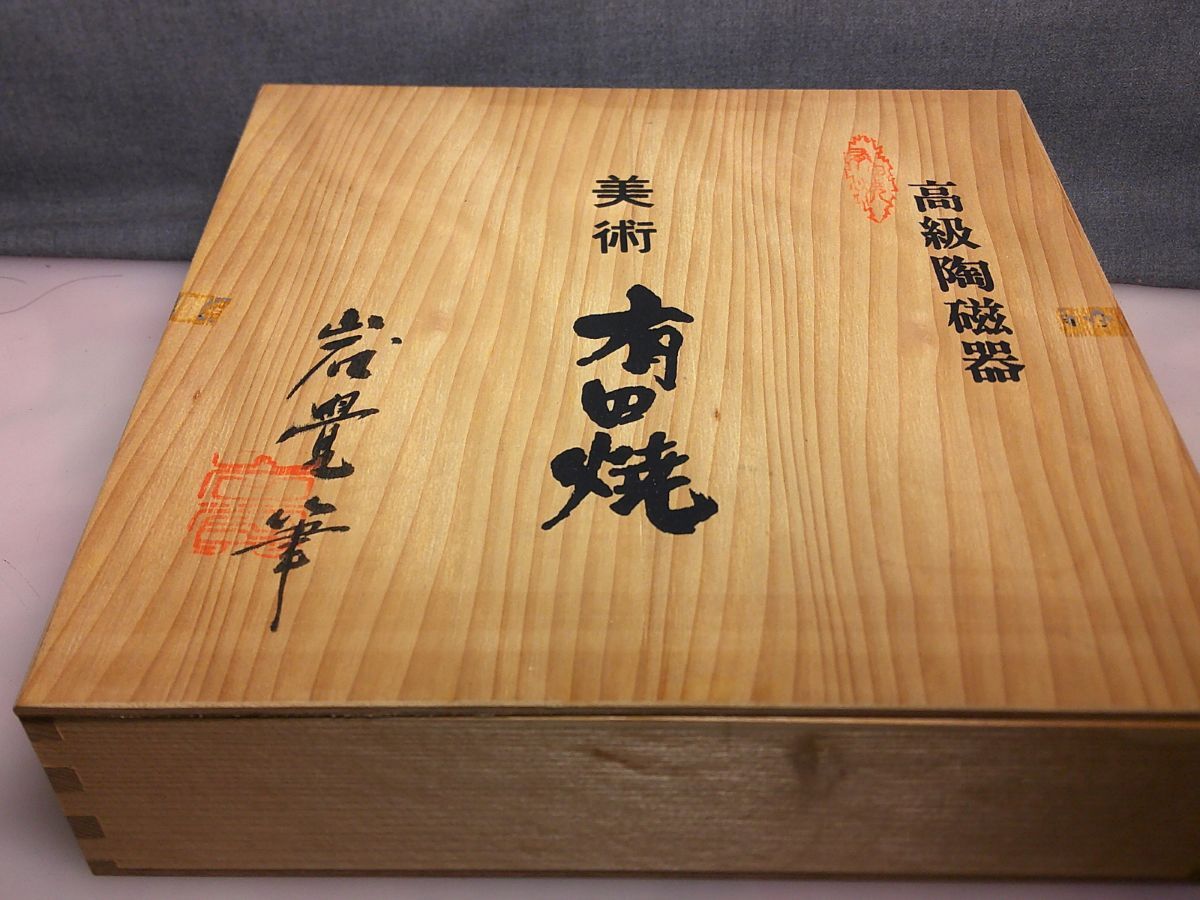 高級陶磁器
美術 有田焼
岩覺筆